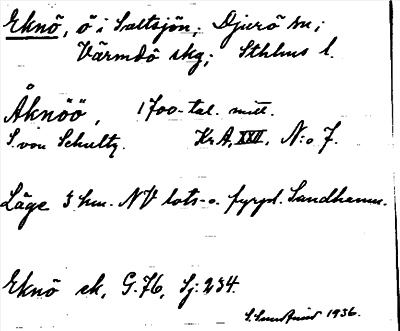 Eknö, ö i Saltsjön; Djurö sn;
Värmdö skg; Sthlms l.
Åknöö, 1700-tal. mitt.
S. von Schultz. Kr.A, XXII, N:o 7.
Läge 3 hm. NV lots- o. fyrpl. Sandhamn.
Eknö ek, G.76, Sj: 234.
1936.